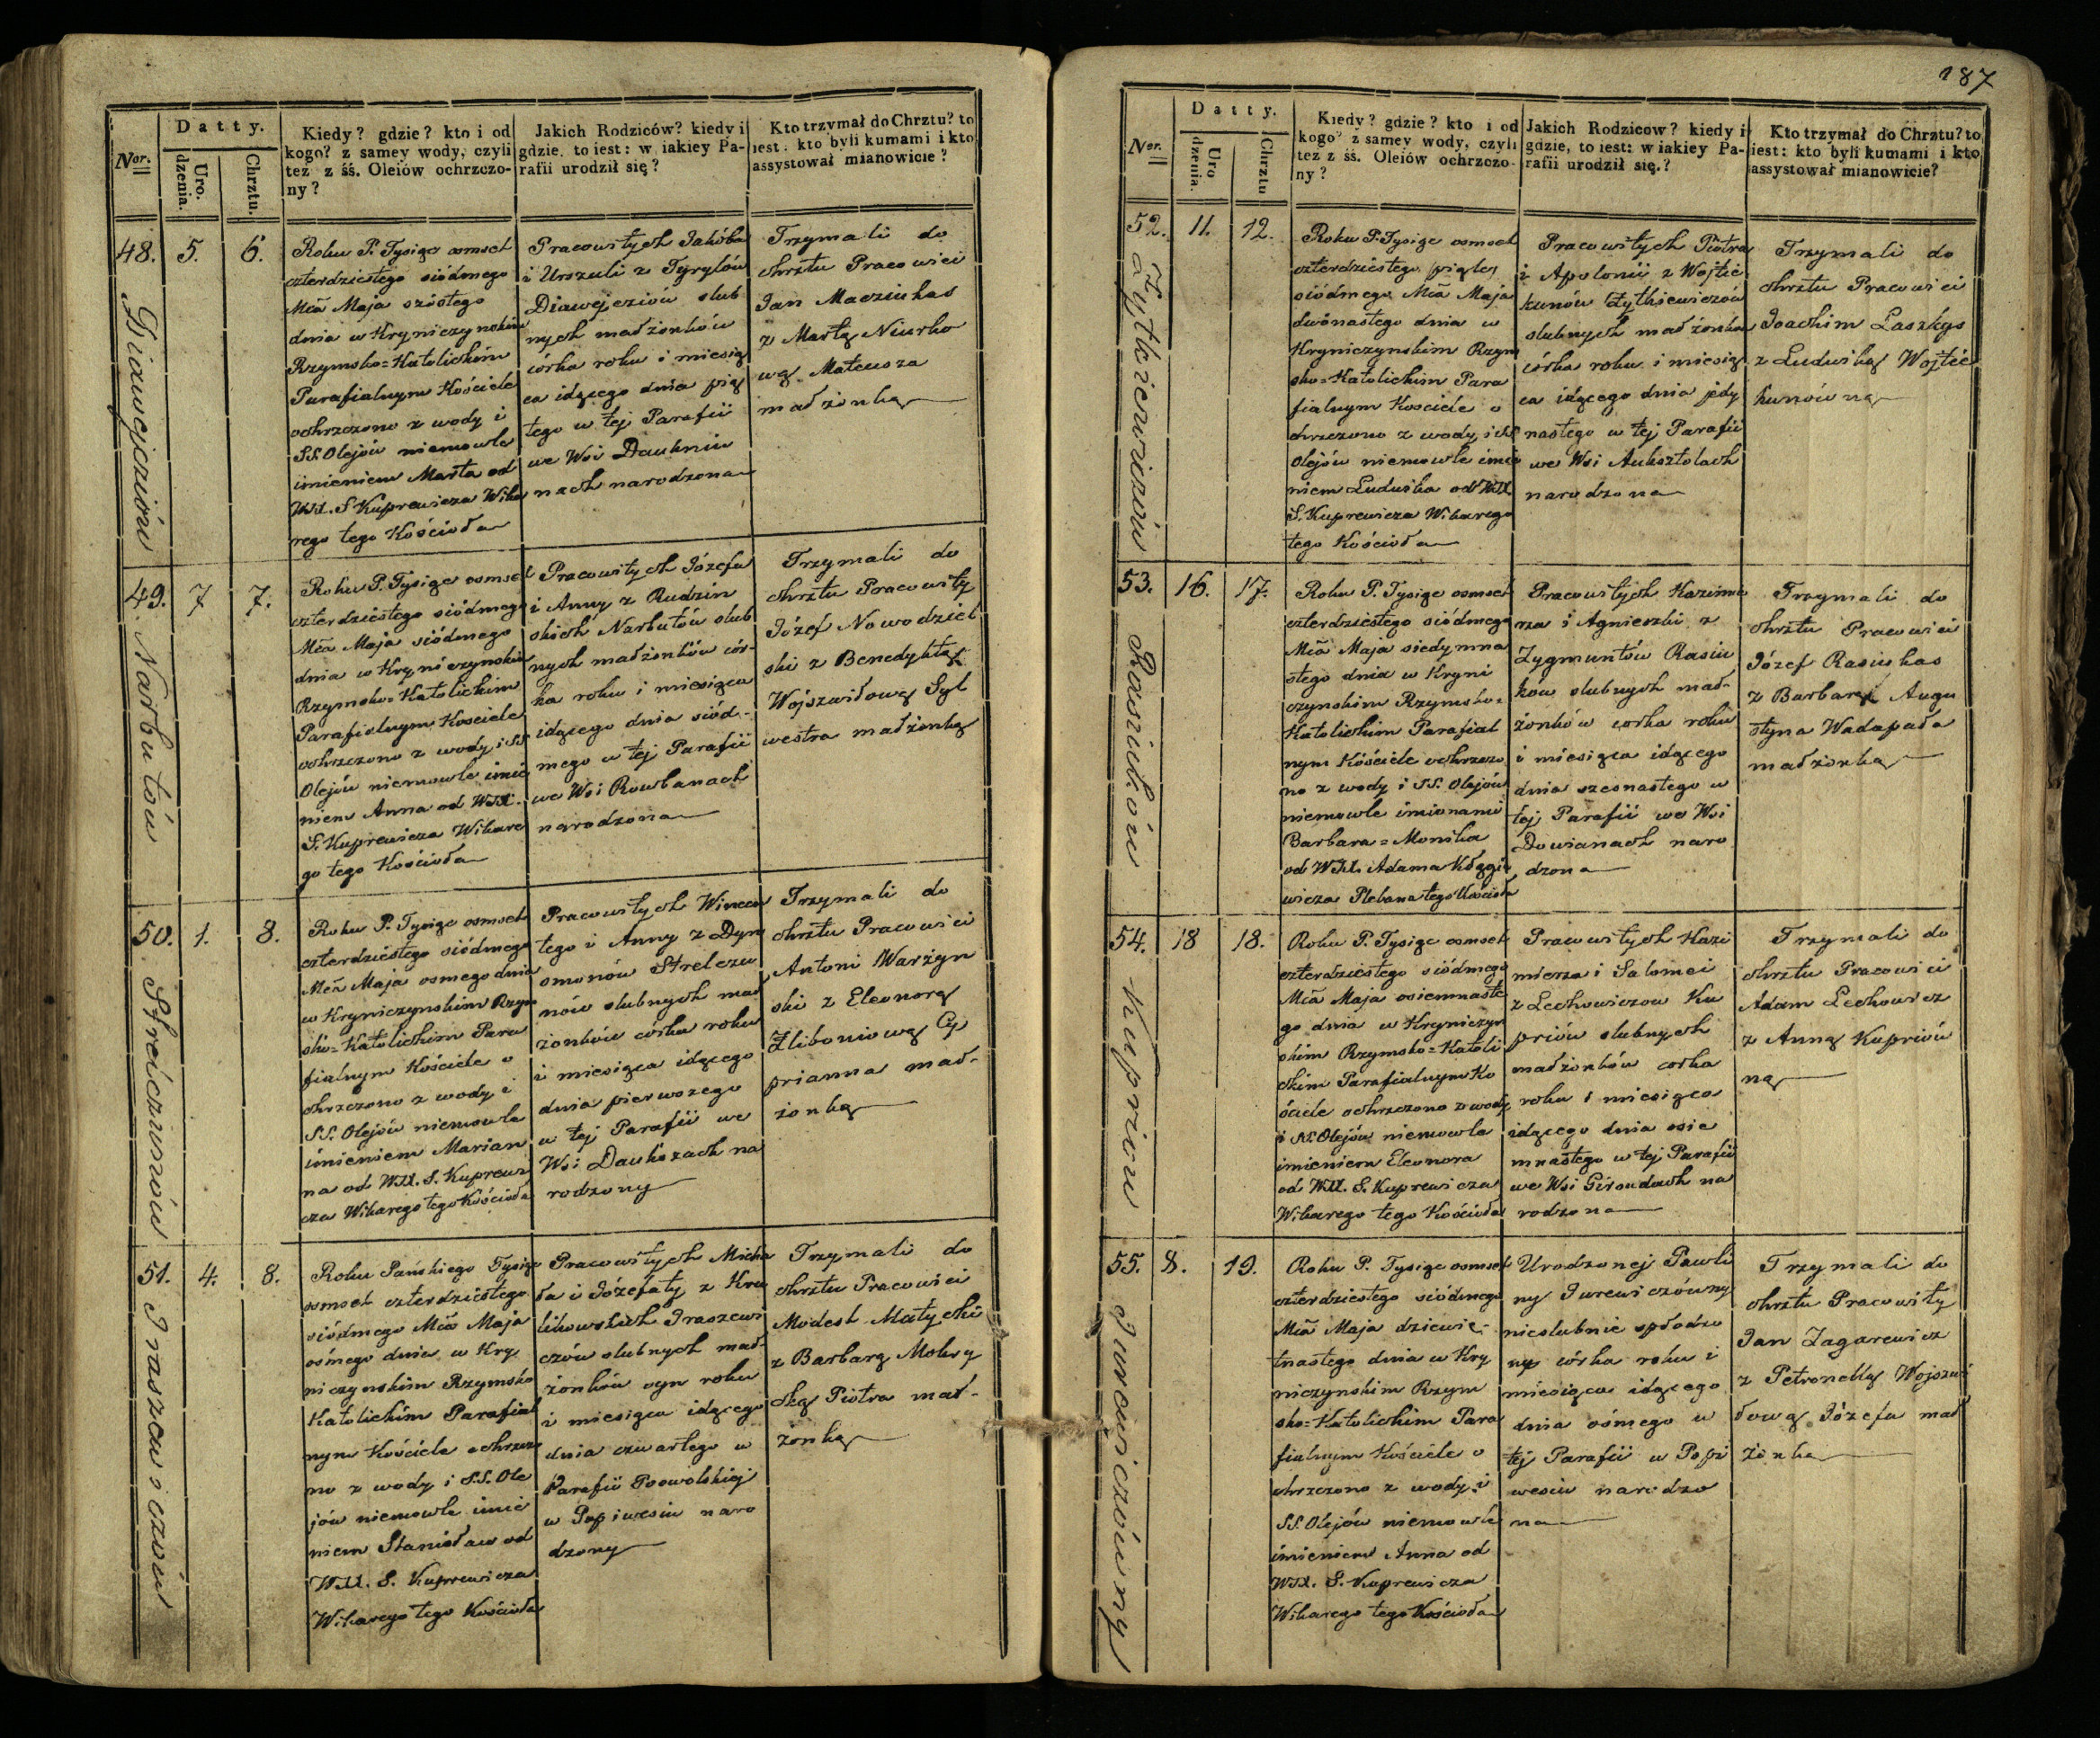 187
Nor.
Datty.
Uro.
dzenia.
Chrztu.
Kiedy? gdzie? kto i od
kogo? z samey wody, czyli
tez z śś. Oleiów ochrzczo-
ny?
Jakich Rodziców? kiedy i
gdzie, to iest: w iakiey Pa-
rafii urodził się?
Kto trzymał do Chrztu? to
iest: kto byli kumami i kto
assystował mianowicie?
48.
5.
6.
Roku P. Tysiąc osmset
czterdziestego siódmego
Mca Maja szóstego
dnia w Kryniczynskim
Rzymsko=Katolickim
Parafialnym Kościele
ochrzczono z wody i
SS. Olejów niemowle
imieniem Marta od
WJX. S Kuprewicza Wika
rego tego Kościoła
Pracowitych Jakóba
i Urszuli z Tyrylów
Diawejcziów slub
nych małżonków
córka roku i miesią
ca idącego dnia pią
tego w tej Parafii
we Wsi Daukniu
nach narodzona
Trzymali do
chrztu Pracowici
Jan Macziukas
z Martą Niurko
wą Mateusza
małżonką
Diawejcziów
49.
7
7.
Roku P. Tysiąc osmset
czterdziestego siódmego
Mca Maja siódmego
dnia w Kryniczynskim
Rzymsko=Katolickim
Parafialnym Kosciele
ochrzczono z wody i SS
Olejów niemowle imie
niem Anna od WJX.
S. Kuprewicza Wikare
go tego Kościoła
Pracowitych Józefa
i Anny z Rudzin
skich Narbutów slub
nych małżonków cór-
ka roku i miesiąca
idącego dnia siód-
mego w tej Parafii
we Wsi Rowbanach
narodzona
Trzymali do
chrztu Pracowity
Józef Nowodziel
ski z Benedyktą
Wójszwiłową Syl
westra małżonką
Narbutów
50.
1.
8.
Roku P. Tysiąc osmset
czterdziestego siódmego
Mca Maja osmego dnia
w Kryniczynskim Rzym
sko=Katolickim Para
fialnym Kościele o
chrzczono z wody i
SS. Olejów niemowle
imieniem Marian
na od WJX. S. Kuprewi
cza Wikarego tego Kościoła
Pracowitych Wincen
tego i Anny z Dyn
smonów Strelczu
nów slubnych mał
żonków córka roku
i miesiąca idącego
dnia pierwszego
w tej Parafii we
Wsi Daukszach na
rodzony
Trzymali do
chrztu Pracowici
Antoni Warżyn
ski z Eleonorą
Żliboniową Cy
prianna mał-
żonką
Strelczunów
51.
4.
8.
Roku Pańskiego Tysiąc
osmset czterdziestego
siódmego Mca Maja
ośmego dnia w Kry
niczynskim Rzymsko
Katolickim Parafial
nym Kościele ochrzczo
no z wody i S.S. Ole
jów niemowle imie
niem Stanisław od
WJX. S. Kuprewicza
Wikarego tego Kościoła
Pracowitych Micha
ła i Józefaty z Kru
likowskich Jraszewi
czów slubnych mał-
żonków syn roku
i miesiąca idącego
dnia czwartego w
Parafii Poswolskiej
w Popiwesiu naro
dzony
Trzymali do
chrztu Pracowici
Modest Matycki
z Barbarą Mokrzy
cką Piotra mał-
żonką
Jraszewiczów
Nor.
Datty.
Uro
dzenia.
Chrztu
Kiedy? gdzie? kto i od
kogo? z samey wody, czyli
tez z śś. Oleiów ochrzczo-
ny?
Jakich Rodzicow? kiedy i
gdzie, to iest: w iakiey Pa-
rafii urodził się.?
Kto trzymał do Chrztu? to
iest: kto byli kumami i kto
assystował mianowicie?
52.
11.
12.
Roku P. Tysiąc osmset
czterdziestego piątego
siódmego Mca Maja
dwónastego dnia w
Kryniczynskim Rzym
sko=Katolickim Para
fialnym Kosciele o
chrzczono z wody i SS
Olejów niemowle imie
niem Ludwika od WJX
S. Kuprewicza Wikarego
tego Kościoła
Pracowitych Piotra
i Apolonii z Wojtie
kunów Żytkiewiczów
slubnych małżonków
córka roku i miesią
ca idącego dnia jedy
nastego w tej Parafii
we Wsi Auksztolach
narodzona
Trzymali do
chrztu Pracowici
Joachim Laszkys
z Ludwiką Wojtie
kunówną
Żytkiewiczów
53.
16.
17.
Roku P. Tysiąc osmset
czterdziestego siódmego
Mca Maja siedymna
stego dnia w Kryni
czynskim Rzymsko=
Katolickim Parafial
nym Kościele ochrzczo
no z wody i SS. Olejów
niemowle imionami
Barbara=Monika
od WJX. Adama Kłągie
wicza Plebana tego Kościoła
Pracowitych Kazimie
rza i Agnieszki z
Zygmuntów Rasiu
ków slubnych mał-
żonków corka roku
i miesiąca idącego
dnia szesnastego w
tej Parafii we Wsi
Dowianach naro
dzona
Trzymali do
chrztu Pracowici
Józef Rasiukas
z Barbarą Augu
styna Wadapała
małżonką
Rasiuków
54.
18
18.
Roku P. Tysiąc osmset
czterdziestego siódmego
Mca Maja osiemnaste
go dnia w Kryniczyn
skim Rzymsko=Katoli
ckim Parafialnym Ko
ściele ochrzczono z wody
i SS. Olejów niemowle
imieniem Eleonora
od WJX. S. Kuprewicza
Wikarego tego Kościoła
Pracowitych Kazi
mierza i Salomei
z Lechowiczow Ku
priów slubnych
małżonków corka
roku i miesiąca
idącego dnia osie
mnastego w tej Parafii
we Wsi Girsudach na
rodzona
Trzymali do
chrztu Pracowici
Adam Lechowicz
z Anną Kupriów
ną
Kupriow
55.
8.
19.
Roku P. Tysiąc osmset
czterdziestego siódmego
Mca Maja dziewię-
tnastego dnia w Kry
niczynskim Rzym
sko=Katolickim Para
fialnym Kościele o
chrzczono z wody i
SS. Olejów niemowle
imieniem Anna od
WJX. S. Kuprewicza
Wikarego tego Kościoła
Urodzonej Pawli
ny Jurewiczówny
nieslubnie spłodzo
ny córka roku i
miesiąca idącego
dnia ośmego w
tej Parafii w Popi
wesiu narodzo
na
Trzymali do
chrztu Pracowity
Jan Zagarewicz
z Petronellą Wojszwi
łową Józefa mał
żonką
Jurewiczówny